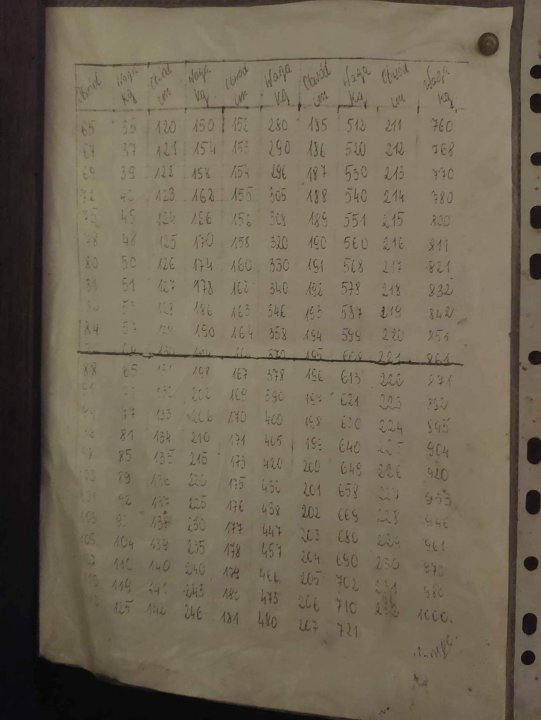 Obwód Waga Obwód Waga Obwód Waga Obwód Waga Obwód Waga
kg cm kg cm kg cm kg cm kg
65 35 120 150 152 280 185 512 211 760
67 37 121 154 153 290 186 520 212 768
69 39 122 158 154 296 187 530 213 770
72 123 162 155 305 188 540 214 780
75 45 124 166 156 308 189 551 215 800
78 48 125 170 158 320 190 560 216 811
80 50 126 174 160 330 191 568 217 821
81 51 127 178 162 340 192 578 218 832
53 128 186 163 346 193 587 219 842
84 57 129 190 164 358 194 599 220 851
370 195 608 221 861
88 65 198 167 378 196 613 222 871
132 202 169 390 621 223 882
77 133 206 170 400 198 630 224 895
81 134 210 171 405 199 640 225 904
85 135 215 173 420 200 649 226 920
89 136 220 175 430 201 658 227 933
92 137 225 176 438 202 669 228 946
138 230 177 447 203 680 229 961
105 104 139 235 178 457 204 690 230 970
110 140 240 179 466 205 702 231 980
119 141 243 180 473 206 710 232 1000
125 142 246 181 480 207 721